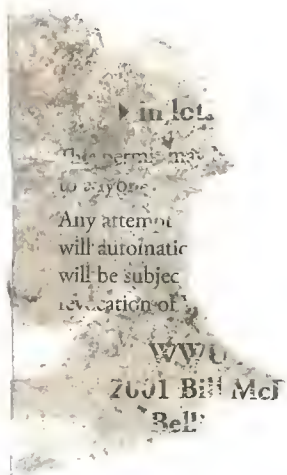 in lots
This permit may
to anyone
Any attempt
will automatic
will be subjec
revocation of
WWU
2001 Bill McD
Bell